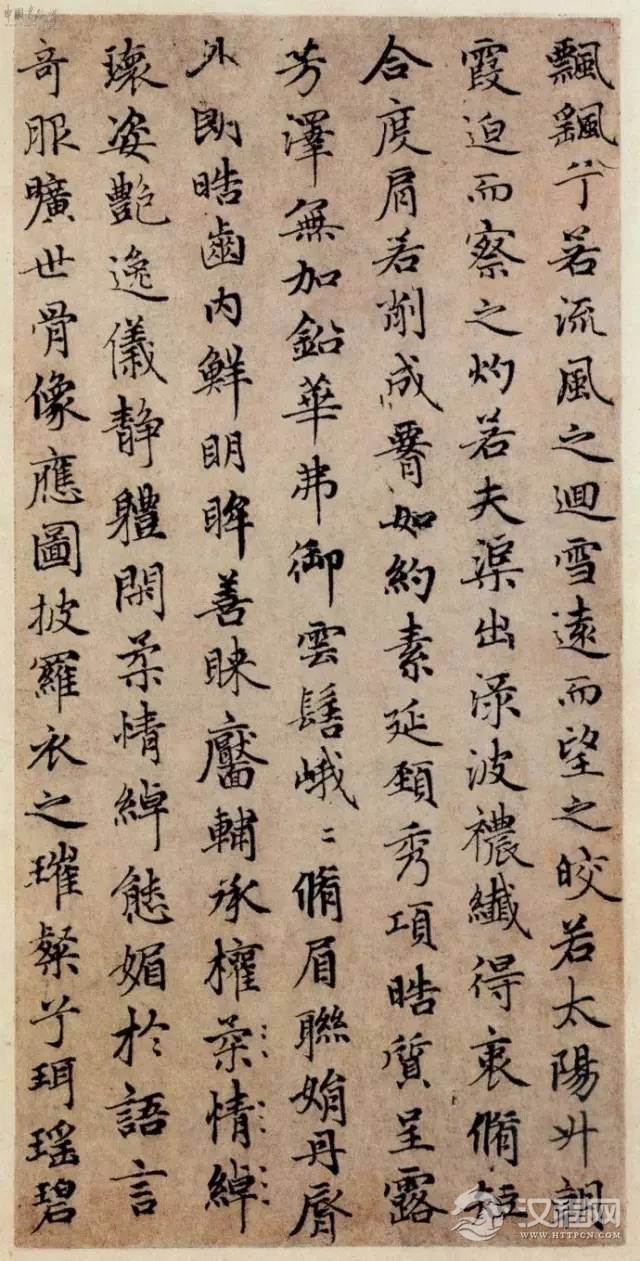 飄飖兮若流風之迴雪遠而望之皎若太陽升朝
霞迫而察之灼若夫渠出渌波襛纖得衷脩短
合度肩若削成䙅如約素延頸秀項晧質呈露
芳澤無加鉛華弗御雲髻峨〻脩眉聯娟丹脣
外朗晧齒內鮮明眸善睞靨輔承權柔情綽
瓌姿艷逸儀靜體閑柔情綽態媚於語言
奇服曠世骨像應圖披羅衣之璀粲兮珥瑤碧
汉程网
HTTPCN.COM